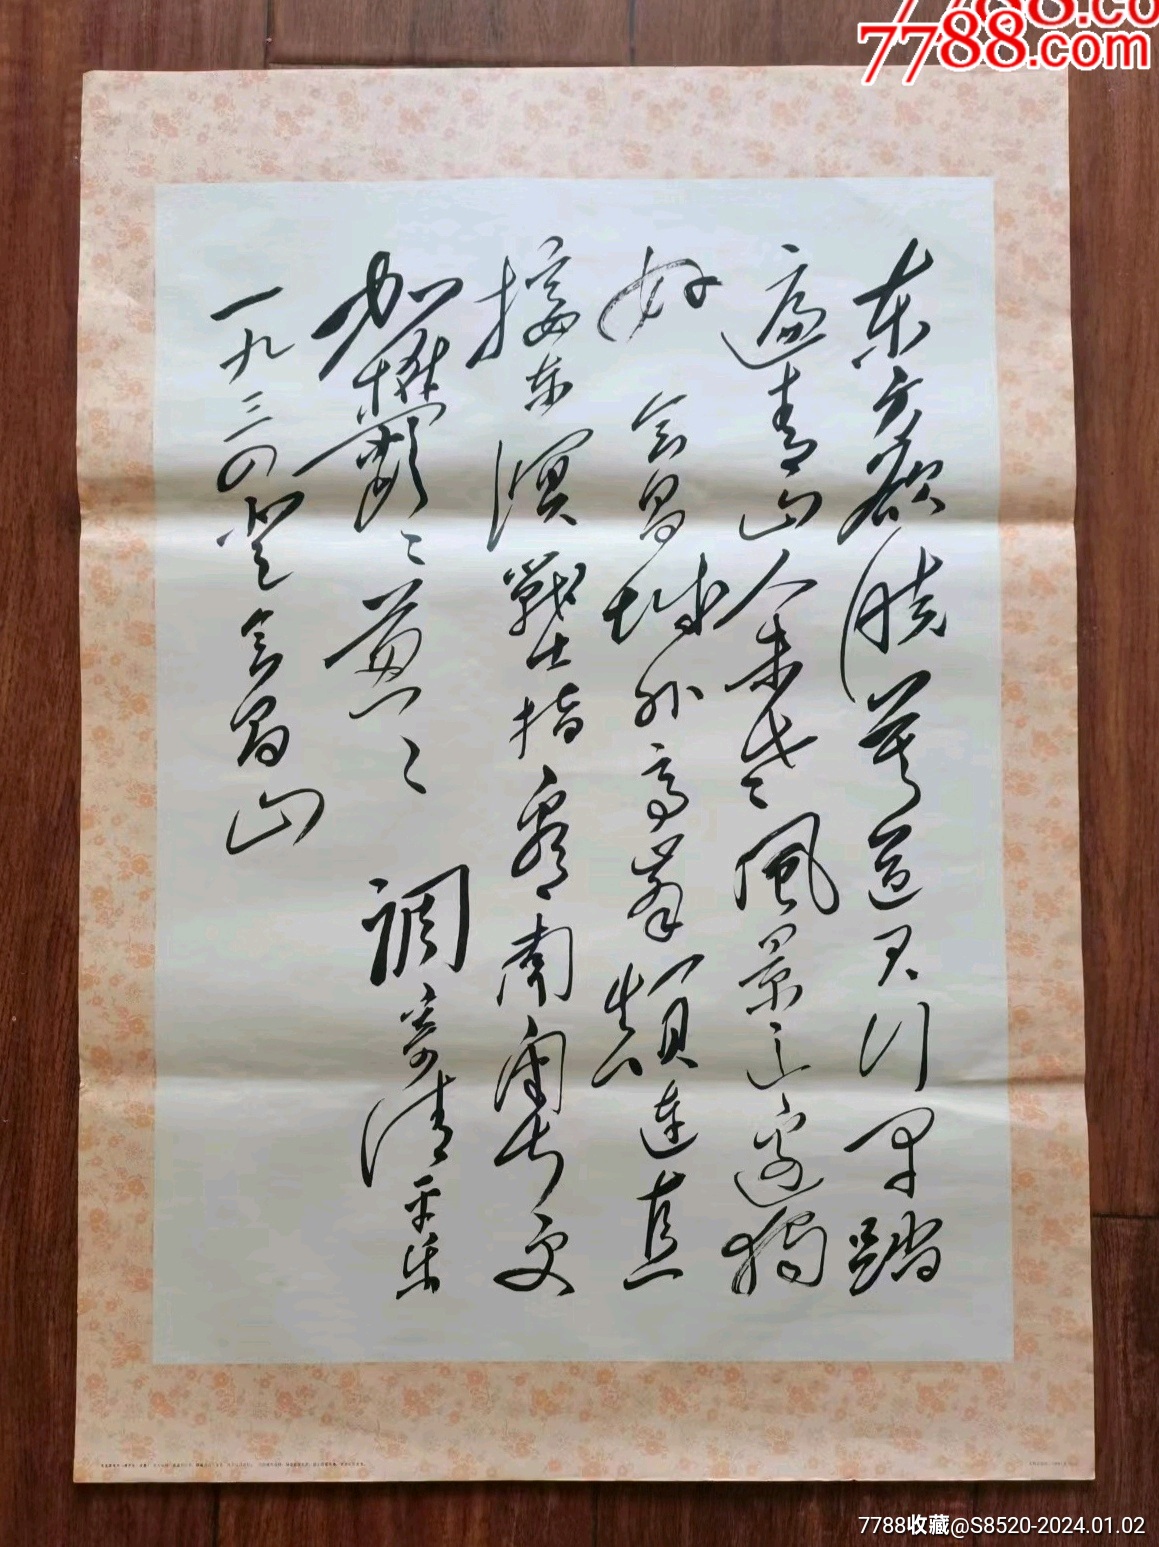 7788.co
7788.com
东方欲晓莫道君行早踏
遍青山人未老風景这边獨
好 会昌城外高峯顛连直
接东溟戰士指看南粤更
加鬱〻葱〻 調寄清平乐
一九三四登会昌山
7788收藏@S8520-2024.01.02